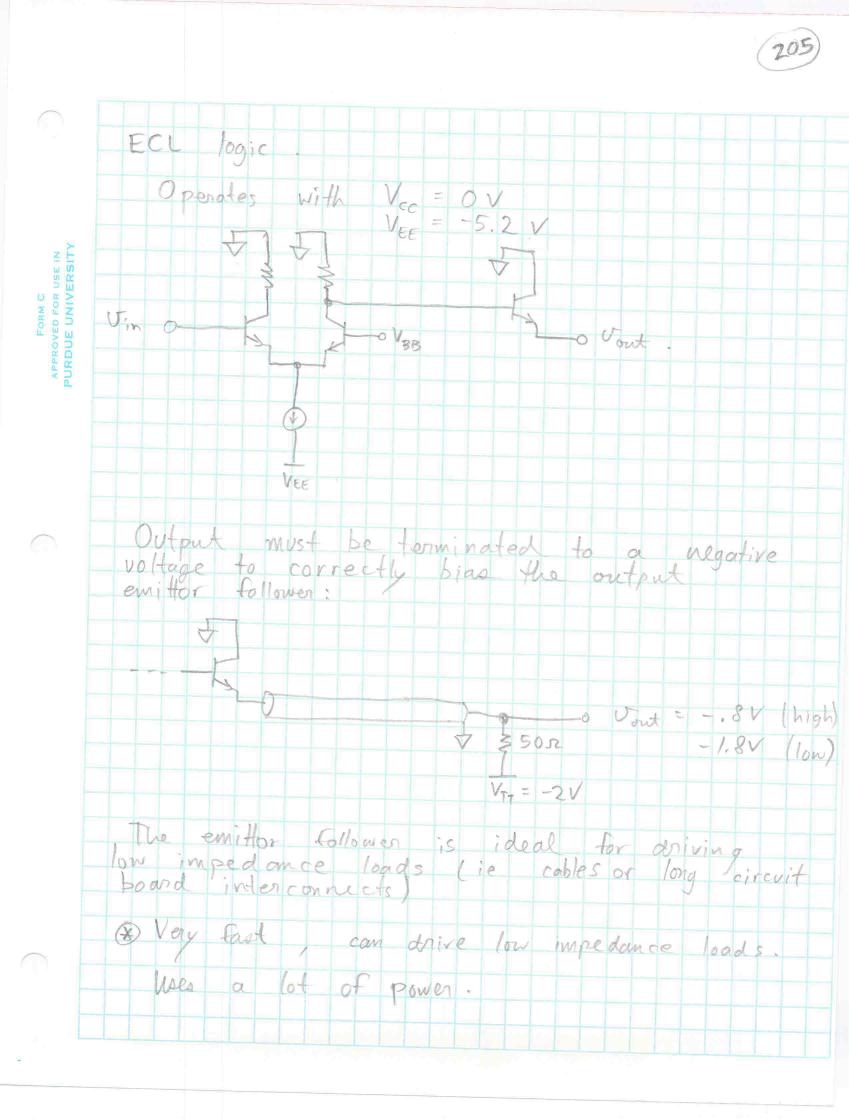 205
FORM C
APPROVED FOR USE IN
PURDUE UNIVERSITY
ECL logic.
Operates with V_CC = 0 V
V_EE = -5.2 V
V_in
V_BB
V_out.
V_EE
Output must be terminated to a negative
voltage to correctly bias the output
emittor follower:
V_out = -.8V (high)
-1.8V (low)
50Ω
V_TT = -2V
The emittor follower is ideal for driving
low impedance loads (ie cables or long circuit
board interconnects)
* Very fast, can drive low impedance loads.
Uses a lot of power.